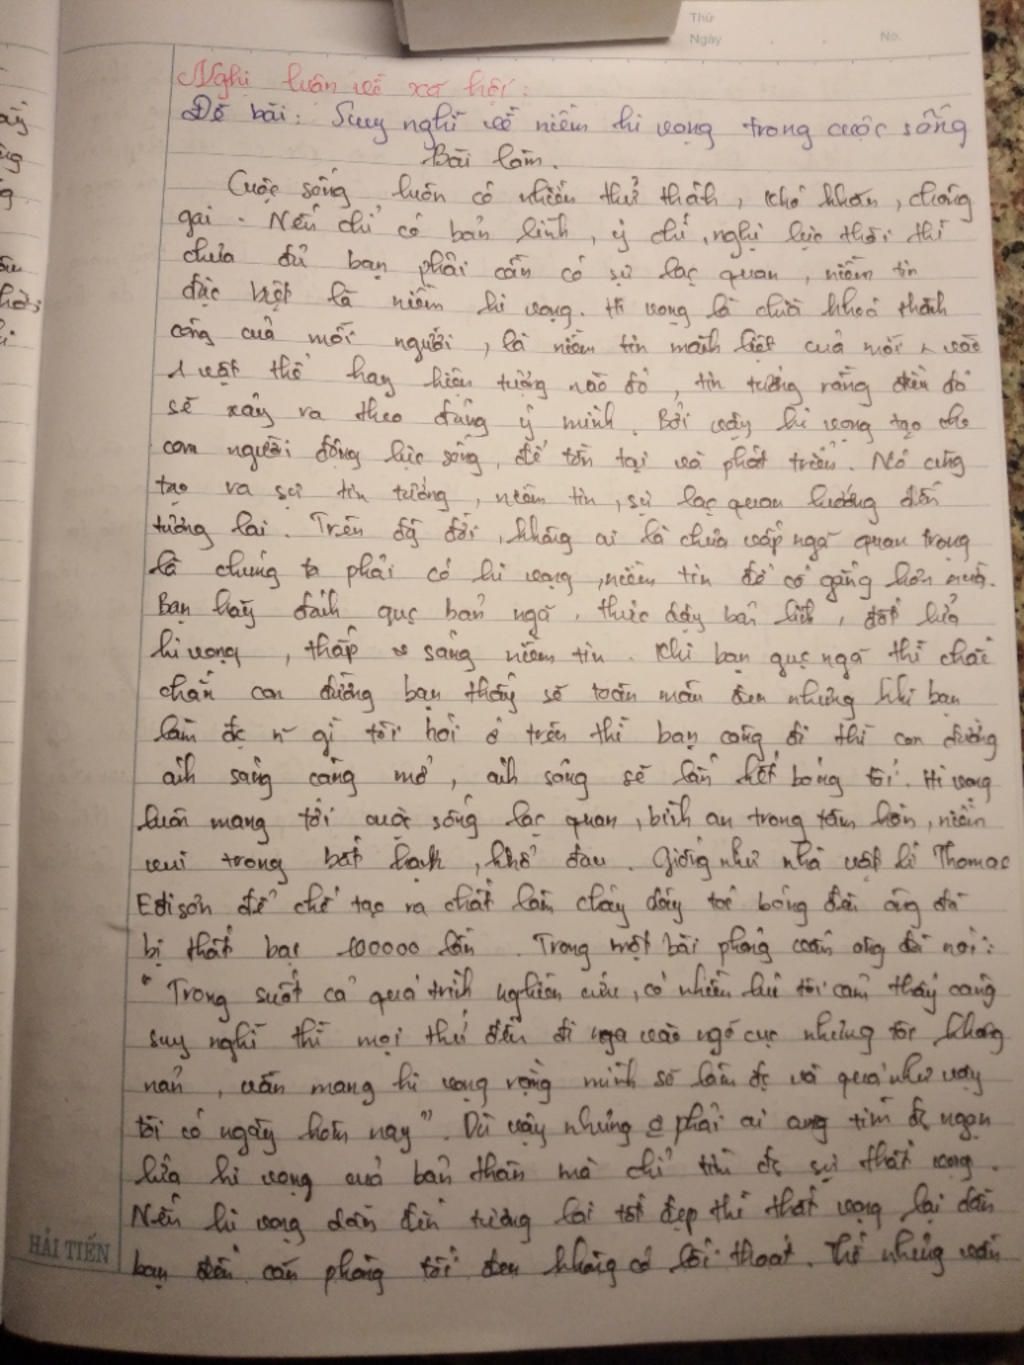 Thứ
Ngày No.
Nghị luận về xã hội:
Đề bài: Suy nghĩ về niềm hi vọng trong cuộc sống
Bài làm.
Cuộc sống luôn có nhiều thử thách, khó khăn, chông
gai. Nếu chỉ có bản lĩnh, ý chí, nghị lực thôi thì
chưa đủ bạn phải cần có sự lạc quan, niềm tin
đặc biệt là niềm hi vọng. Hi vọng là chìa khoá thành
công của mỗi người, là niềm tin mãnh liệt của mỗi vào
1 vật thể hay hiện tượng nào đó, tin tưởng rằng điều đó
sẽ xảy ra theo đúng ý mình. Bởi vậy hi vọng tạo cho
con người động lực sống, để tồn tại và phát triển. Nó cũng
tạo ra sự tin tưởng, niềm tin, sự lạc quan hướng đến
tương lai. Trên đg đời, không ai là chưa vấp ngã quan trọng
là chúng ta phải có hi vọng, niềm tin để cố gắng hơn nữa.
Bạn hãy đánh gục bản ngã, thức dậy bản lĩnh, đốt lửa
hi vọng, thắp sáng niềm tin. Khi bạn gục ngã thì chắc
chắn con đường bạn thấy sẽ toàn màu đen nhưng khi bạn
làm đc n~ gì tôi nói ở trên thì bạn càng đi thì con đường
ánh sáng càng mở, ánh sáng sẽ lấn hết bóng tối. Hi vọng
luôn mang tới cuộc sống lạc quan, bình an trong tâm hồn, niềm
vui trong bất hạnh, khổ đau. Giống như nhà vật lí Thomas
Edison để chế tạo ra chất làm cháy dây tóc bóng đèn ông đã
bị thất bại 100000 lần. Trong một bài phỏng vấn ông đã nói:
"Trong suốt cả quá trình nghiên cứu, có nhiều lúc tôi cảm thấy càng
suy nghĩ thì mọi thứ đều đi vào ngõ cục nhưng tôi không
nản, vẫn mang hi vọng rằng mình sẽ làm đc và quả như vậy
tôi có ngày hôm nay". Dù vậy nhưng o phải ai cũng tìm đc ngọn
lửa hi vọng của bản thân mà chỉ tìm đc sự thất vọng.
Nếu hi vọng dẫn đến tương lai tốt đẹp thì thất vọng lại dẫn
bạn đến căn phòng tối đen không có lối thoát. Thế nhưng vẫn
HẢI TIẾN